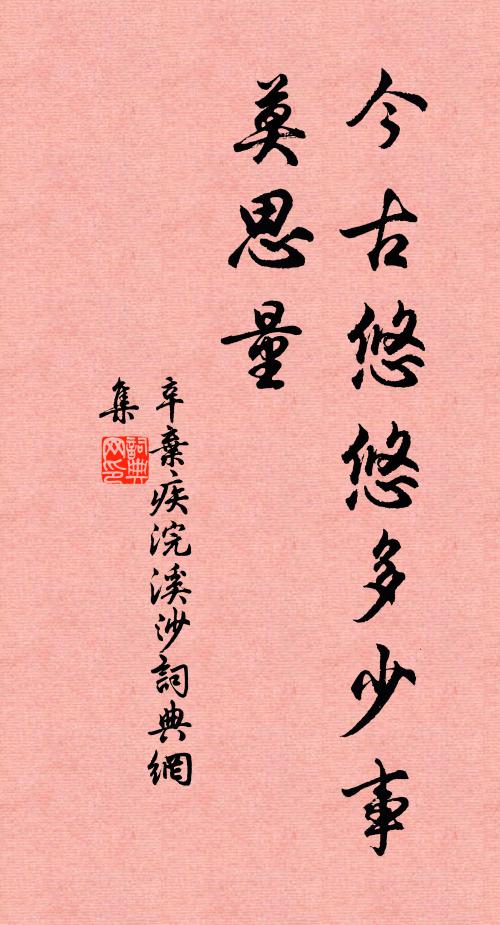 今古悠悠多少事
莫思量
辛棄疾浣溪沙詞典網
集
詞典
网印